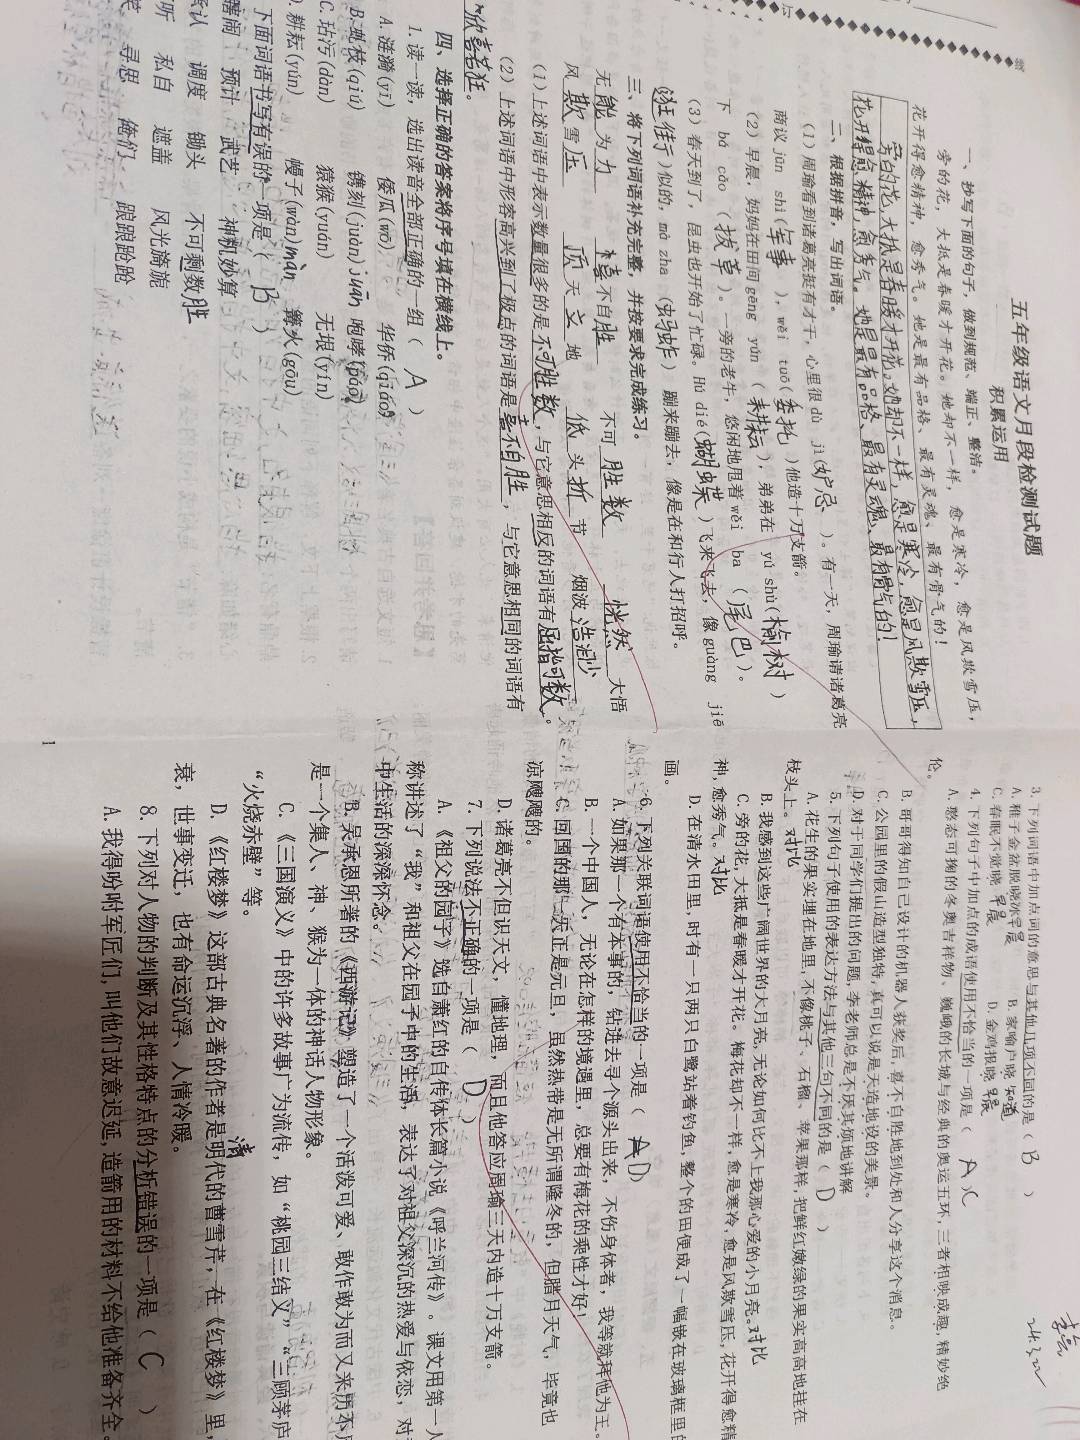 五年级语文月段检测试题
积累运用
一、抄写下面的句子，做到规范、端正、整洁。
旁的花，大抵是春暖才开花。她却不一样，愈是寒冷，愈是风欺雪压，
花开得愈精神，愈秀气。她是最有品格、最有灵魂、最有骨气的！
旁的花，大抵是春暖才开花。她却不一样，愈是寒冷，愈是风欺雪压，
花开得愈精神，愈秀气。她是最有品格、最有灵魂、最有骨气的！
二、根据拼音，写出词语。
（1）周瑜看到诸葛亮挺有才干，心里很 dù jì（妒忌）。有一天，周瑜请诸葛亮
商议 jūn shì（军事），wěi tuō（委托）他造十万支箭。
（2）早晨，妈妈在田间 gēng yún（耕耘），弟弟在 yú shù（榆树）
下 bá cǎo（拔草）。一旁的老牛，悠闲地甩着 wěi ba（尾巴）。
（3）春天到了，昆虫也开始了忙碌。Hú dié（蝴蝶）飞来飞去，像 guàng jiē
（逛街）似的，mà zha（蚂蚱）蹦来蹦去，像是在和行人打招呼。
三、将下列词语补充完整，并按要求完成练习。
无能为力 喜不自胜 不可胜数 恍然大悟
风欺雪压 顶天立地 低头折节 烟波浩渺
（1）上述词语中表示数量很多的是不可胜数，与它意思相反的词语有屈指可数。
（2）上述词语中形容高兴到了极点的词语是喜不自胜，与它意思相同的词语有
欣喜若狂。
四、选择正确的答案将序号填在横线上。
1. 读一读，选出读音全部正确的一组（ A ）
A. 涟漪(yī) 倭瓜(wō) 华侨(qiáo)
B. 虬枝(qiú) 镌刻(juàn) juān 咆哮(páo)
C. 玷污(diàn) 猿猴(yuán) 无垠(yín)
D. 耕耘(yún) 幔子(wàn) màn 篝火(gōu)
下面词语书写有误的一项是（ B ）
预计 武艺 神机妙算
承认 调度 锄头 不可剩数 胜
私自 遮盖 风光旖旎
寻思 俺们 踉踉跄跄
1
24.3.22
3. 下列词语中加点词的意思与其他几项不同的是（ B ）
A. 稚子金盆脱晓冰 早晨 B. 家喻户晓 知道
C. 春眠不觉晓 早晨 D. 金鸡报晓 早晨
4. 下列句子中加点的成语使用不恰当的一项是（ A ）C
A. 憨态可掬的冬奥吉祥物、巍峨的长城与经典的奥运五环，三者相映成趣，精妙绝
伦。
B. 哥哥得知自己设计的机器人获奖后，喜不自胜地到处和人分享这个消息。
C. 公园里的假山造型独特，真可以说是天造地设的美景。
D. 对于同学们提出的问题，李老师总是不厌其烦地讲解
5. 下列句子使用的表达方法与其他三句不同的是（ D ）
A. 花生的果实埋在地里，不像桃子、石榴、苹果那样，把鲜红嫩绿的果实高高地挂在
枝头上。对比
B. 我感到这些广阔世界的大月亮，无论如何比不上我那心爱的小月亮。对比
C. 旁的花，大抵是春暖才开花。梅花却不一样，愈是寒冷，愈是风欺雪压，花开得愈精
神，愈秀气。对比
D. 在清水田里，时有一只两只白鹭站着钓鱼，整个的田便成了一幅嵌在玻璃框里的
画。
6. 下列关联词语使用不恰当的一项是（ D）
A. 如果那一个有本事的，钻进去寻个源头出来，不伤身体者，我等就拜他为王。
B. 一个中国人，无论在怎样的境遇里，总要有梅花的秉性才好！
C. 回国的那一天正是元旦，虽然热带是无所谓隆冬的，但腊月天气，毕竟也
凉飕飕的。
D. 诸葛亮不但识天文，懂地理，而且他答应周瑜三天内造十万支箭。
7. 下列说法不正确的一项是（ D ）
A. 《祖父的园子》选自萧红的自传体长篇小说《呼兰河传》。课文用第一人
称讲述了“我”和祖父在园子中的生活，表达了对祖父深沉的热爱与依恋，对
中生活的深深怀念。
B. 吴承恩所著的《西游记》塑造了一个活泼可爱、敢作敢为而又来历不
是一个集人、神、猴为一体的神话人物形象。
C. 《三国演义》中的许多故事广为流传，如“桃园三结义”“三顾茅庐
“火烧赤壁”等。
清
D. 《红楼梦》这部古典名著的作者是明代的曹雪芹，在《红楼梦》里，
衰，世事变迁，也有命运沉浮、人情冷暖。
8. 下列对人物的判断及其性格特点的分析错误的一项是（ C ）
A. 我得吩咐军匠们，叫他们故意迟延，造箭用的材料不给他准备齐全。